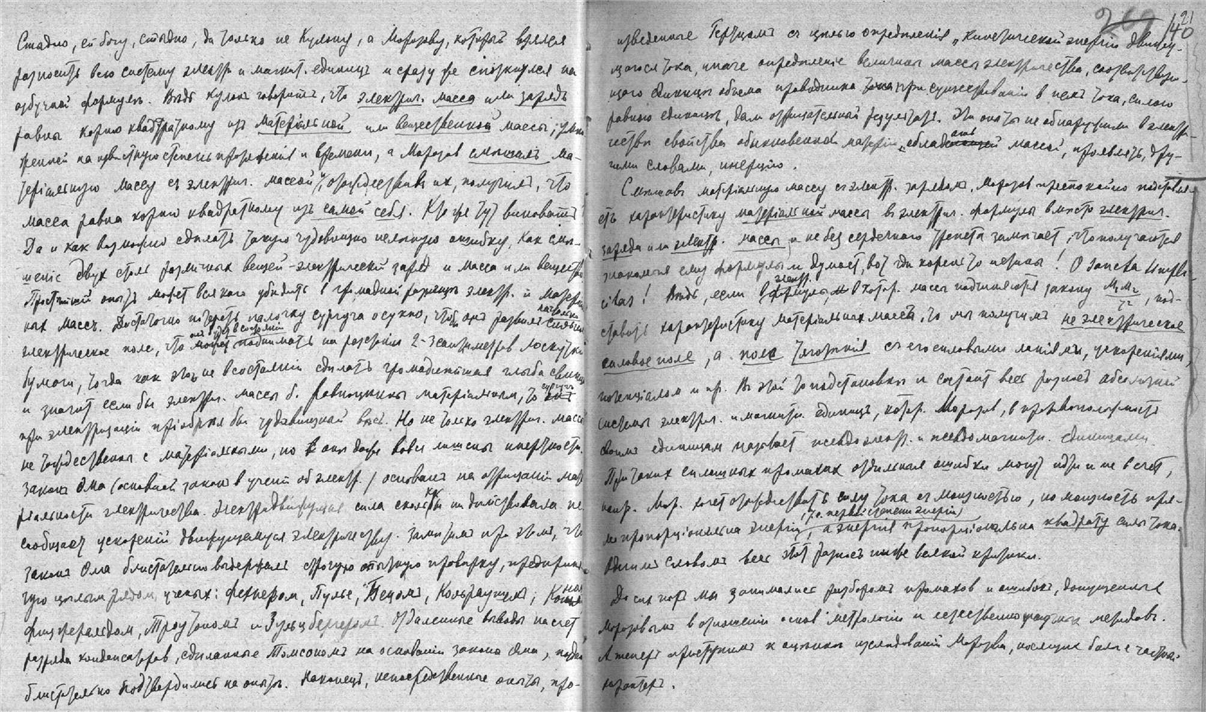 Стыдно, ей богу, стыдно, да только не Кулону, а Морозову, который взялся
разносить всю систему электр. и магнит. единиц и сразу же споткнулся на
азбучной формуле. Ведь Кулон говорит, что электрич. масса или заряд
равны корню квадратному из матеріальной или вещественной массы,
на известную степень протяженія и времени, а Морозов смешалъ ма-
теріальную массу съ электрич. массой, отождествивъ их, получилъ, что
масса равна корню квадратному изъ самой себя. Кто же тут виноватъ?
Да и как возможно сделать такую чудовищно нелепую ошибку, как сме-
шеніе двух столь различных вещей - электрический заряд и масса или вещество
Простейший опыт может всякого убедить в громадной разнице электр. и матері
ных масс. Достаточно потереть палочку сургуча о сукно, чтобы она развила
электрическое поле, что поднимать на разстоянии 2-3 сантиметров лоскутки
бумаги, тогда как это не в состоянии сделать громаднейшая глыба свинца
и значит если бы электр. массы б. равноценны матеріальным, то
при электризации пріобрел бы чудовищный вес. Но не только электрич. массы
не тождественны с матеріальными, но они даже вовсе лишены инертности.
Закон Ома (основной закон в учении об электр.) основан на отрицаніи мате
ріальности электричества. Электродвижущая сила сколько бы ни действовала не
сообщает ускорений движущемуся электричеству. Заметим при этом, что
закон Ома блистательно выдержал строгую опытную проверку, предприня
тую целым рядом ученых: Фехнером, Пулье, Беетцом, Кольраушем,
Фицджеральдом, Троутоном и. Отдаленные выводы насчет
разряда конденсаторов, сделанные Томсоном на основании закона Ома, также
блистательно подтвердились на опыте. Наконец, непосредственные опыты, про-
21
260 140
изведенные Герцом с целью определения "кинетической энергии движу-
щагося тока, иначе определение величины массы электричества, соответствую-
щаго единице объема проводника тока при существовании в нем тока, силою
равного единице, дали отрицательный результат. Эти опыты не обнаружили в электри-
честве свойства обыкновенной материи обладать массой, проявлять, дру-
гими словами, инерцию.
Смешав матеріальную массу с электр. зарядом, Морозов преспокойно подставля
ет характеристику матеріальной массы в электрич. формулы вместо электрич.
заряда или электр. массы и не без сердечного трепета замечает, что получаются
знакомыя ему формулы и думает, вот где корень то тяготы! O sancta simpli
citas! Ведь, если в электр. формулы в котор. массы подчиняются закону m₁m₂/r², под-
ставить характеристику матеріальных масс, то мы получим не электрическое
силовое поле, а поле тяготения с его силовыми линиями, ускорениями,
потенциалом и пр. В этой то подстановке и состоит весь разнос абсолютной
системы электр. и магнитн. единиц, котор. Морозов, в противоположность
своим единицам называет псевдоэлектр. и псевдомагнитн. единицами.
При таких сплошных промахах отдельная ошибка могут идти и не в счет,
напр. Мор. хочет отождествить силу тока с мощностью, но мощность пря-
мо пропорціональна энергии, т.е. первой степени энергии, а энергия пропорціональна квадрату силы тока.
Одним словом весь этот разнос ниже всякой критики.
До сих пор мы занимались разбором промахов и ошибок, допущенных
Морозовым в отношении основ метрологии и естественнонаучных методов.
А теперь приступим к оценке изследований Морозова, носящих более частный
характер.